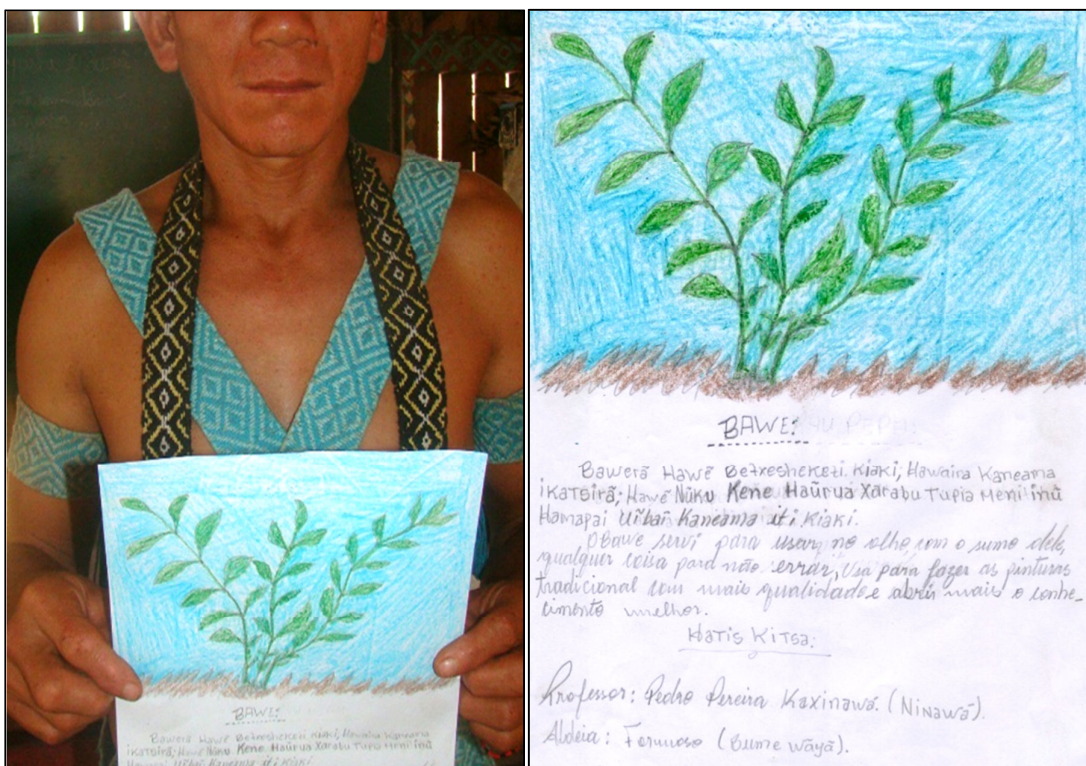 BAWE:
Bawerã Hawẽ Betxesheketi Kiaki, Hawaira Kaneama
iKatsirã; Hawẽ Nũku Kene Haũrua Xarabu Tupia Meni inũ
Hamapai Uĩbaĩ Kaneama iti Kiaki
BAWE:
Bawerã Hawẽ Betxesheketi. Kiaki; Hawaira Kaneama
iKatsirã; Hawẽ Nũku Kene Haũrua Xarabu Tupia Meni inũ
Hamapai Uĩbaĩ Kaneama iti Kiaki.
O Bawe servi para usar no olho com o sumo dele,
qualquer coisa para não errar, usa para fazer as pinturas
tradicional com mais qualidade e abrir mais o conhe-
cimento melhor.
Hatis Kitsa:
Professor: Pedro Pereira Kaxinawá. (Ninawá).
Aldeia: Formoso (Bume Wãyã).